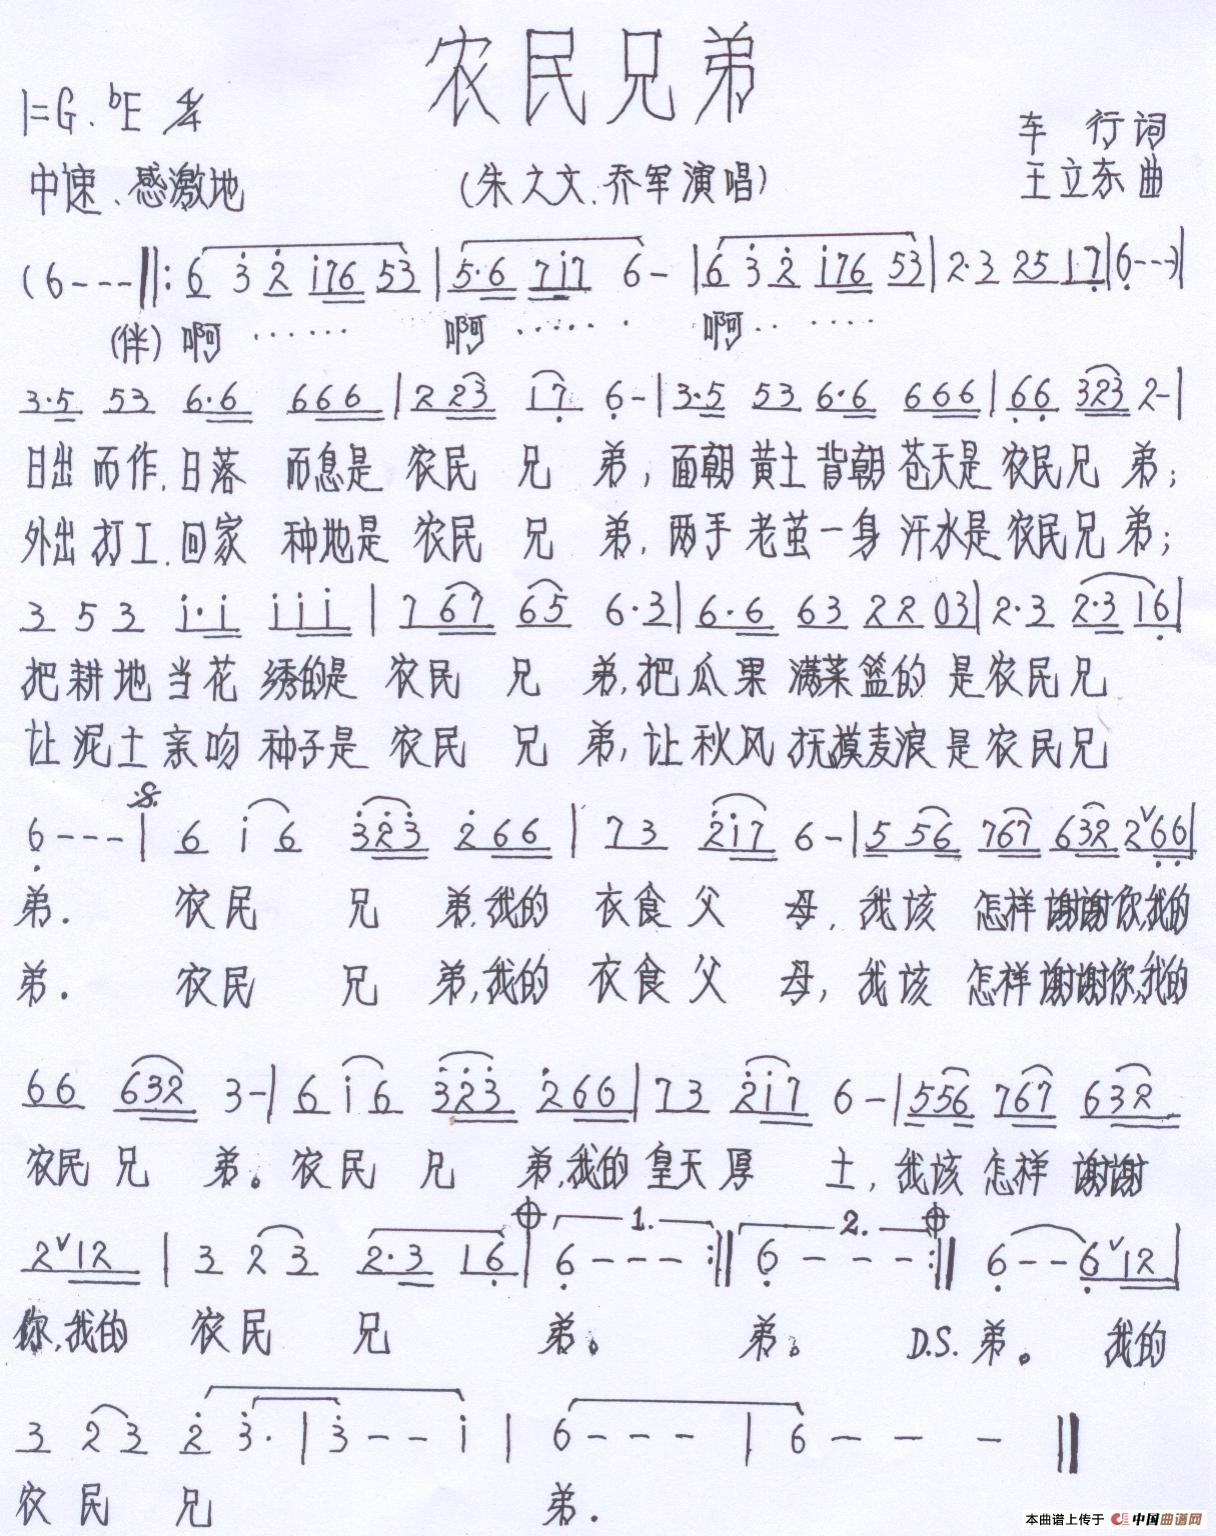 农民兄弟
1=G.♭E 4/4
车 行词
中速、感激地
(朱之文.乔军演唱)
王立东曲
(6---‖:6 3̇ 2̇ i76 53|5·6 7i7 6-|6 3̇ 2̇ i76 53|2·3 25 1·7̣|6̣---)|
(伴)啊…… 啊…… 啊……
3·5 53 6·6 666|2 23 17̣ 6̣-|3·5 53 6·6 666|6̣6̣ 323 2-|
日出而作.日落 而息是 农民 兄 弟;面朝黄土背朝苍天是农民兄 弟;
外出打工.回家 种地是 农民 兄 弟.两手老茧一身汗水是农民兄弟;
3 5 3 i·i iii|7 67 65 6·3|6·6 63 22 03|2·3 2·3 16̣|
把耕地当花 绣的是 农民 兄 弟,把瓜果满菜篮的是农民兄
让泥土亲吻种子是 农民 兄 弟,让秋风抚摸麦浪是农民兄
6̣---|6 i 6 3̇2̇3̇ 2̇66|73 2̇i7 6-|5 56 767 632 2ˇ6̣6̣|
弟. 农民 兄 弟,我的 衣食父 母,我该 怎样谢谢你,我的
弟. 农民 兄 弟,我的 衣食父 母,我该 怎样谢谢你,我的
66 632 3-|6 i 6 3̇2̇3̇ 2̇66|73 2̇i7 6-|556 767 632
农民兄 弟。农民 兄 弟,我的皇天厚 土,我该怎样谢谢
2ˇ12|3 2 3 2·3 16̣|1. 6̣---:‖2. 6̣---:‖6̣--6̣ˇ12|
你,我的 农民 兄 弟。 弟。 D.S.弟。 我的
3 2 3 2̇ 3̇·|3̇--i|6---|6---‖
农民 兄 弟.
本曲谱上传于 中国曲谱网